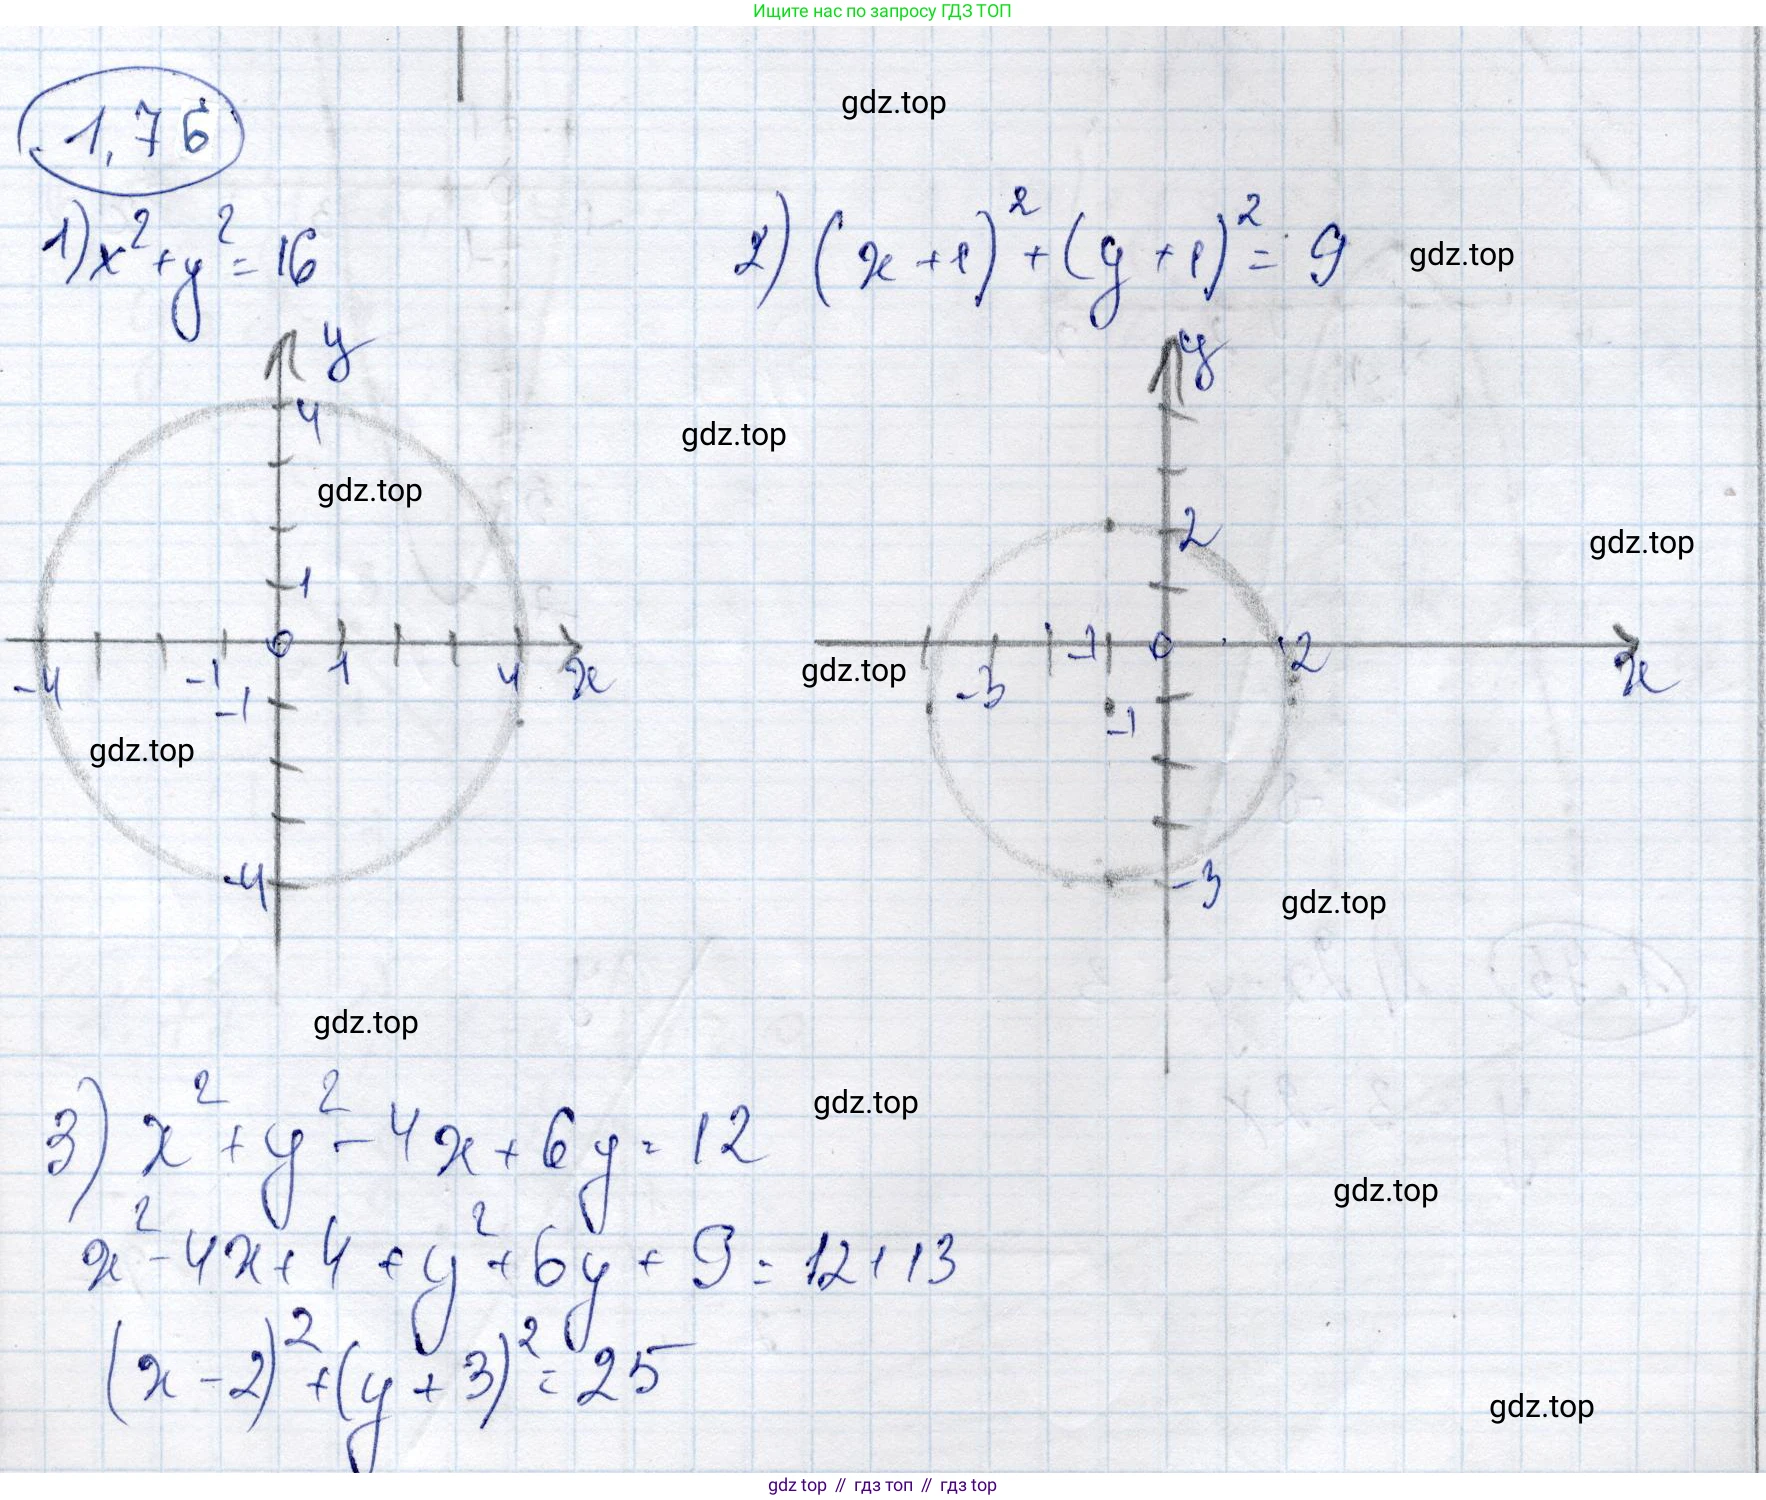 Ищите нас по запросу ГДЗ ТОП
1,76
gdz.top
1) x² + y² = 16
2) (x + 1)² + (y + 1)² = 9
gdz.top
y
y
4
gdz.top
gdz.top
2
gdz.top
1
0
-1
0
-4
-1
1
4
x
gdz.top
-3
2
x
-1
-1
gdz.top
-4
-3
gdz.top
gdz.top
gdz.top
3) x² + y² - 4x + 6y = 12
gdz.top
x² - 4x + 4 + y² + 6y + 9 = 12 + 13
(x - 2)² + (y + 3)² = 25
gdz.top
gdz top // гдз топ // гдз top